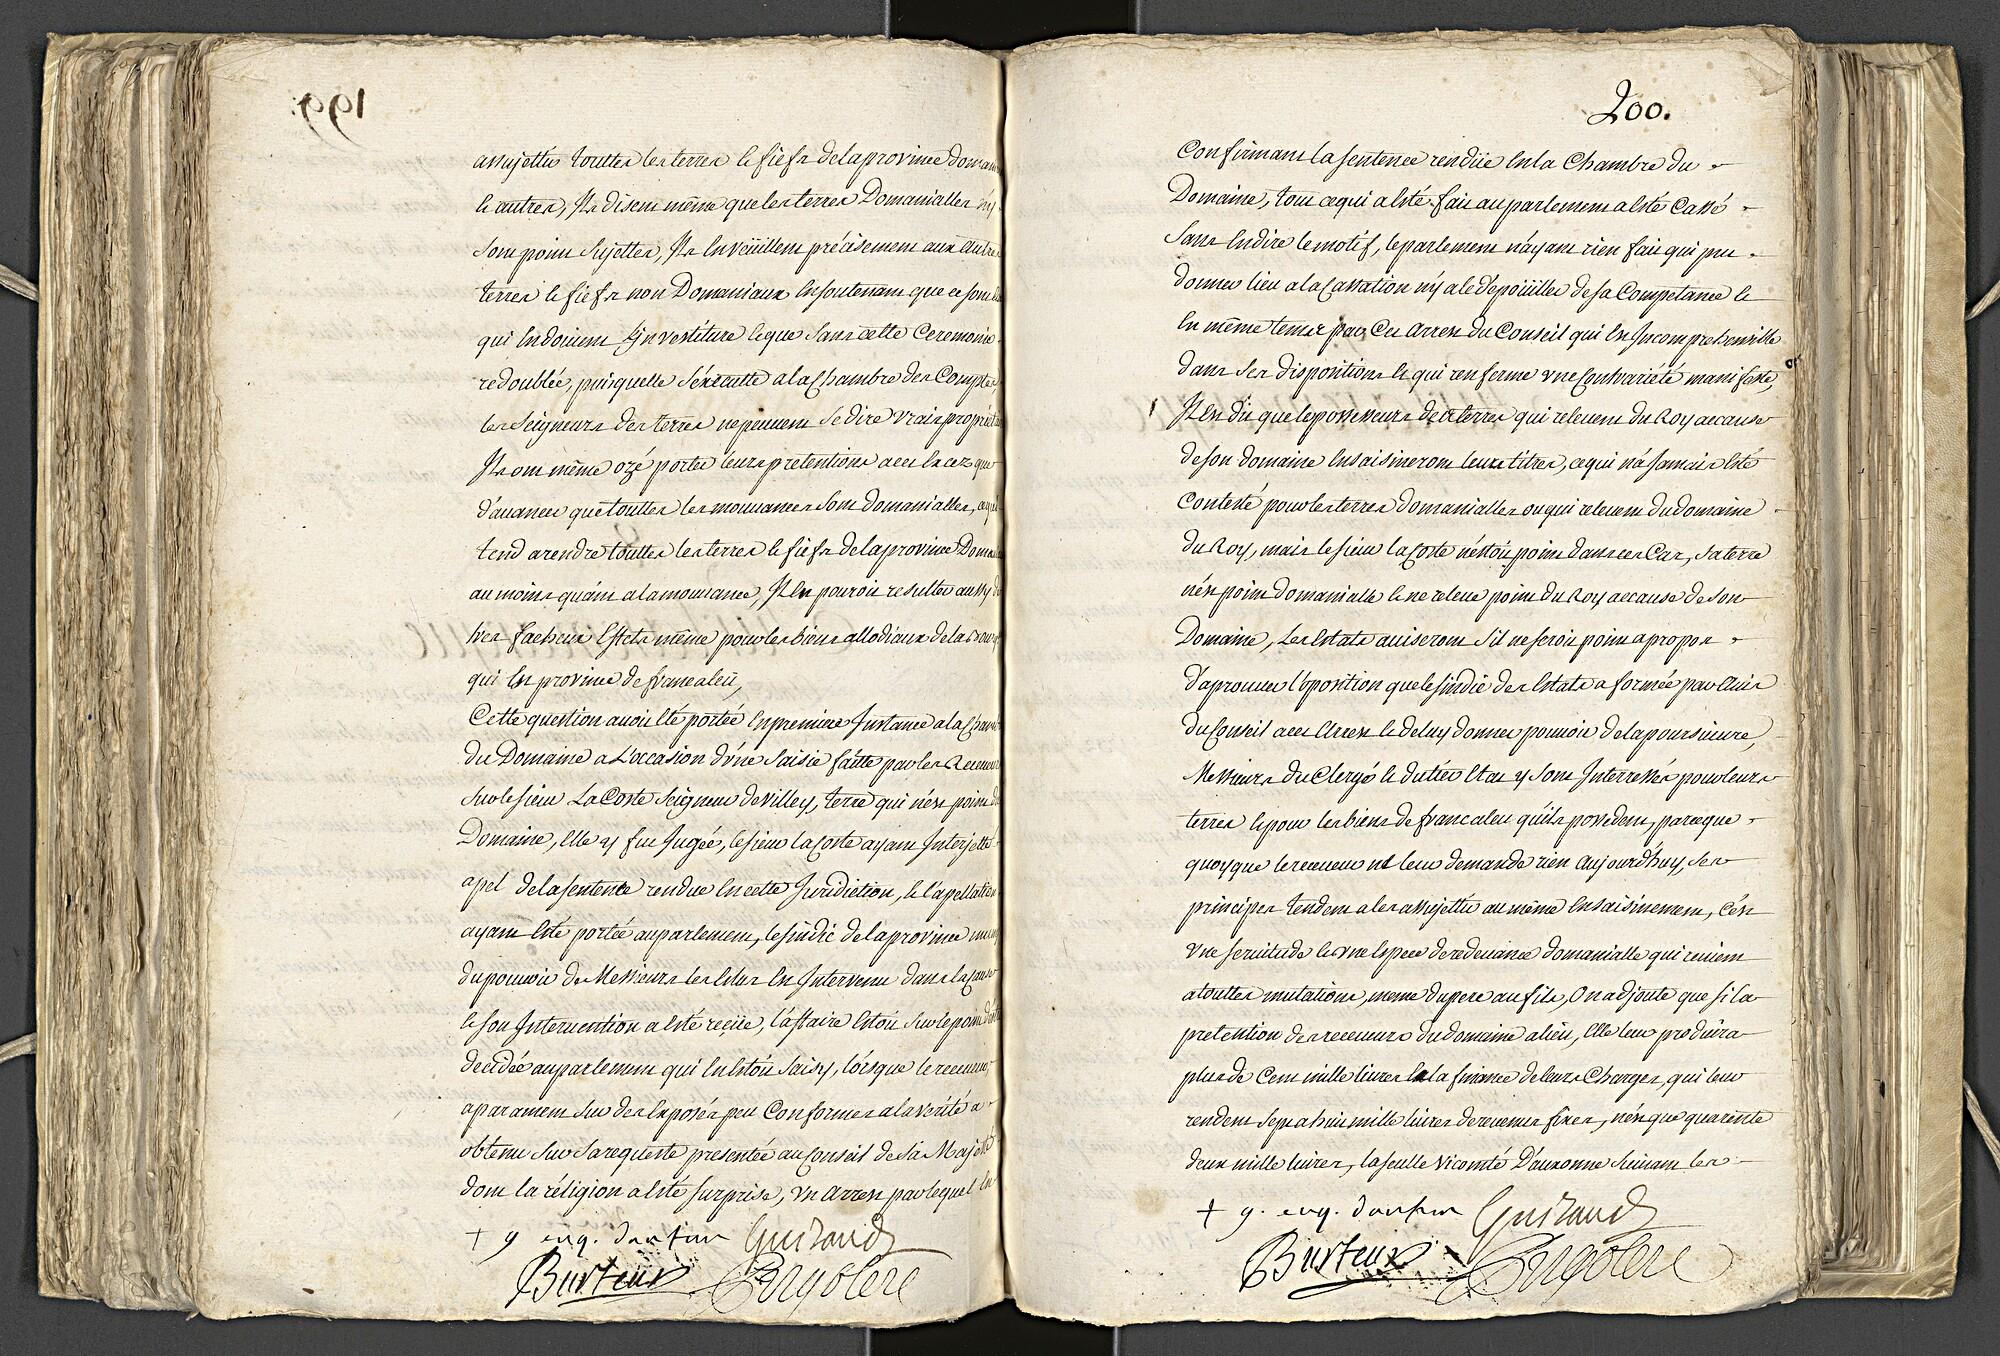 199.
assujettir touttes les terres et fiefs de la province domaniaux
et autres, Ils disent même que les terres Domanialles n'y
sont point sujettes, Ils en veüillent précisement aux autres
terres et fiefs non Domaniaux en soutenant que ce sont
qui en doivent L'investiture et que sans cette Ceremonie
redoublée, puisquelle s'éxecutte a la Chambre des Comptes,
les Seigneurs des terres ne peuvent se dire vrais propriét
Ils ont même ozé porter leurs pretentions a cet excez que
d'avancer que touttes les mouvances sont domanialles, ce qui
tend a rendre touttes les terres et fiefs de la province
au moins quánt a la mouvance, Il en pouroit resulter aussy
tres facheux Effets même pour les biens allodiaux de la
qui est province de franc aleü,
Cette question avoit été portée en premiere Instance a la
du Domaine a L'occasion d'une saisie faitte par les Receveurs
sur le sieur La Coste seigneur de Villey, terre qui n'est point du
Domaine, elle y fut Jugée, le sieur la Coste ayant Interjetté
apel de la sentence rendue en cette Juridiction, et l'apellation
ayant été portée au parlement, le sindic de la province muny
du pouvoir de Messieurs les Elus est Intervenu dans la Cause
et son Intervention a été reçüe, l'affaire étoit sur le point d'être
decidée au parlement qui en étoit saisy, lorsque le receveur,
aparament sur des Exposés peu Conformes a la verité a
obtenu sur sa requeste presentée au Conseil de sa Majesté
dont la réligion a été surprise, un arrest par lequel en
+ g. eng. d'autun Guiraud
Burteur

200.
Confirmant la sentence rendüe en la Chambre du
Domaine, tout ce qui a été fait au parlement a été Cassé
sans en dire le motif, le parlement n'ayant rien fait qui put
donner lieu a la Cassation ny a le dépoüiller de sa Competance et
en même tems par Cet arrest du Conseil qui est Incomprehensible
dans ses dispositions et qui renferme une Contrariété manifeste,
Il est dit que les possesseurs des terres qui relevent du Roy a cause
de son domaine ensaisineront leurs titres, ce qui n'a Jamais été
Contesté pour les terres domanialles ou qui relevent du domaine
du Roy, mais le sieur la Coste n'étoit point dans ces Cas, sa terre
n'est point domanialle et ne releve point du Roy a cause de son
Domaine, Les Estats aviseront s'il ne seroit point apropos
d'aprouver l'oposition que le sindic des Estats a formée par Avis
du Conseil a cet Arrest et de luy donner pouvoir de la poursuivre,
Messieurs du Clergé et du tiers Etat y sont Interressés pour leurs
terres et pour les biens de franc aleu qu'ils possedent, parceque
quoyque le receveur ne leur demande rien aujourd'huy, ses
principes tendent a les assujettir au même ensaisinement, C'est
une servitude et une espece de redevance domanialle qui revient
a touttes mutations, meme du pere au fils, On adjoute que si la
pretention des receveurs du domaine a lieu, elle leur produira
plus de Cent mille livres et la finance de leurs Charges, qui leur
rendent sept a huit mille livres de revenus fixes, n'est que quarente
deux mille livres, la seulle Vicomté D'auxonne suivant les
+ g. eng. d'autun Guiraud
Burteur